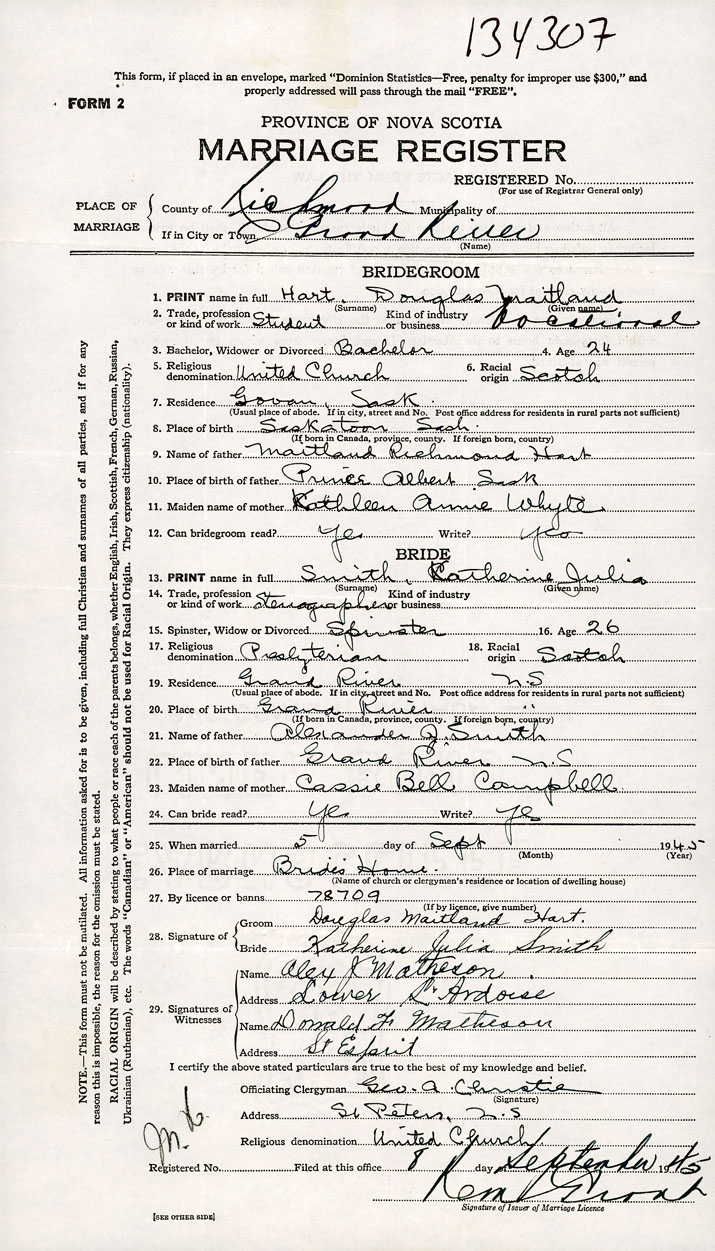 134307
This form, if placed in an envelope, marked "Dominion Statistics—Free, penalty for improper use $300," and
properly addressed will pass through the mail "FREE".
FORM 2
PROVINCE OF NOVA SCOTIA
MARRIAGE REGISTER
REGISTERED No.
(For use of Registrar General only)
PLACE OF MARRIAGE
County of Richmond Municipality of
If in City or Town Grand River
(Name)
BRIDEGROOM
1. PRINT name in full Hart, Douglas Maitland
(Surname) (Given name)
2. Trade, profession or kind of work Student Kind of industry or business Vocational
3. Bachelor, Widower or Divorced Bachelor 4. Age 24
5. Religious denomination United Church 6. Racial origin Scotch
7. Residence Govan, Sask
(Usual place of abode. If in city, street and No. Post office address for residents in rural parts not sufficient)
8. Place of birth Saskatoon Sask.
(If born in Canada, province, county. If foreign born, country)
9. Name of father Maitland Richmond Hart
10. Place of birth of father Prince Albert Sask
11. Maiden name of mother Kathleen Annie Whyte
12. Can bridegroom read? Yes Write? Yes
BRIDE
13. PRINT name in full Smith, Katherine Julia
(Surname) (Given name)
14. Trade, profession or kind of work Stenographer Kind of industry or business
15. Spinster, Widow or Divorced Spinster 16. Age 26
17. Religious denomination Presbyterian 18. Racial origin Scotch
19. Residence Grand River N.S
(Usual place of abode. If in city, street and No. Post office address for residents in rural parts not sufficient)
20. Place of birth Grand River " "
(If born in Canada, province, county. If foreign born, country)
21. Name of father Alexander J. Smith
22. Place of birth of father Grand River N.S
23. Maiden name of mother Cassie Bell Campbell
24. Can bride read? Yes Write? Yes
25. When married 5 day of Sept 1945
(Month) (Year)
26. Place of marriage Bride's Home.
(Name of church or clergyman's residence or location of dwelling house)
27. By licence or banns 78709
(If by licence, give number)
28. Signature of
Groom Douglas Maitland Hart.
Bride Katherine Julia Smith
29. Signatures of Witnesses
Name Alex J Matheson
Address Lower L'Ardoise
Name Donald F. Matheson
Address St Esprit
I certify the above stated particulars are true to the best of my knowledge and belief.
Officiating Clergyman Geo. A. Christie
(Signature)
Address St Peters, N.S
Religious denomination United Church
Registered No. Filed at this office 8 day of September 1945
Signature of Issuer of Marriage Licence
[SEE OTHER SIDE]
NOTE.—This form must not be mutilated. All information asked for is to be given, including full Christian and surnames of all parties, and if for any
reason this is impossible, the reason for the omission must be stated.
RACIAL ORIGIN will be described by stating to what people or race each of the parents belongs, whether English, Irish, Scottish, French, German, Russian,
Ukrainian (Ruthenian), etc. The words "Canadian" or "American" should not be used for Racial Origin. They express citizenship (nationality).